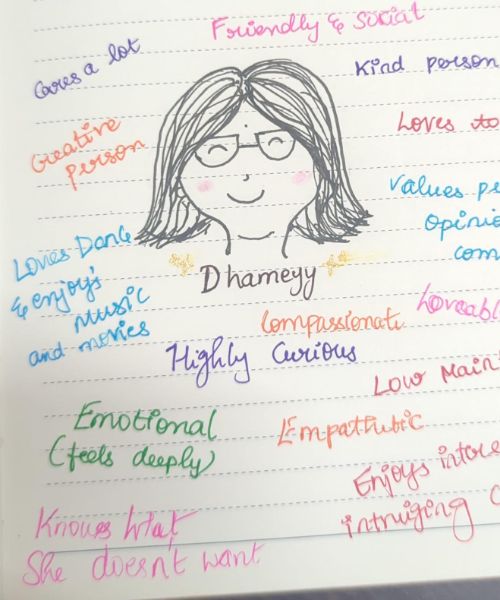 Friendly & Social
Cares a lot
Kind person
Creative
person
Loves to
Values pe
Opinio
com
Loves Dance
& enjoy's
Music
and movies
Dhameyy
Loveabl
Compassionate
Highly Curious
Low Main
Emotional
(feels deeply)
Empathetic
Enjoys inter
intruiging
Knows what
She doesn't want